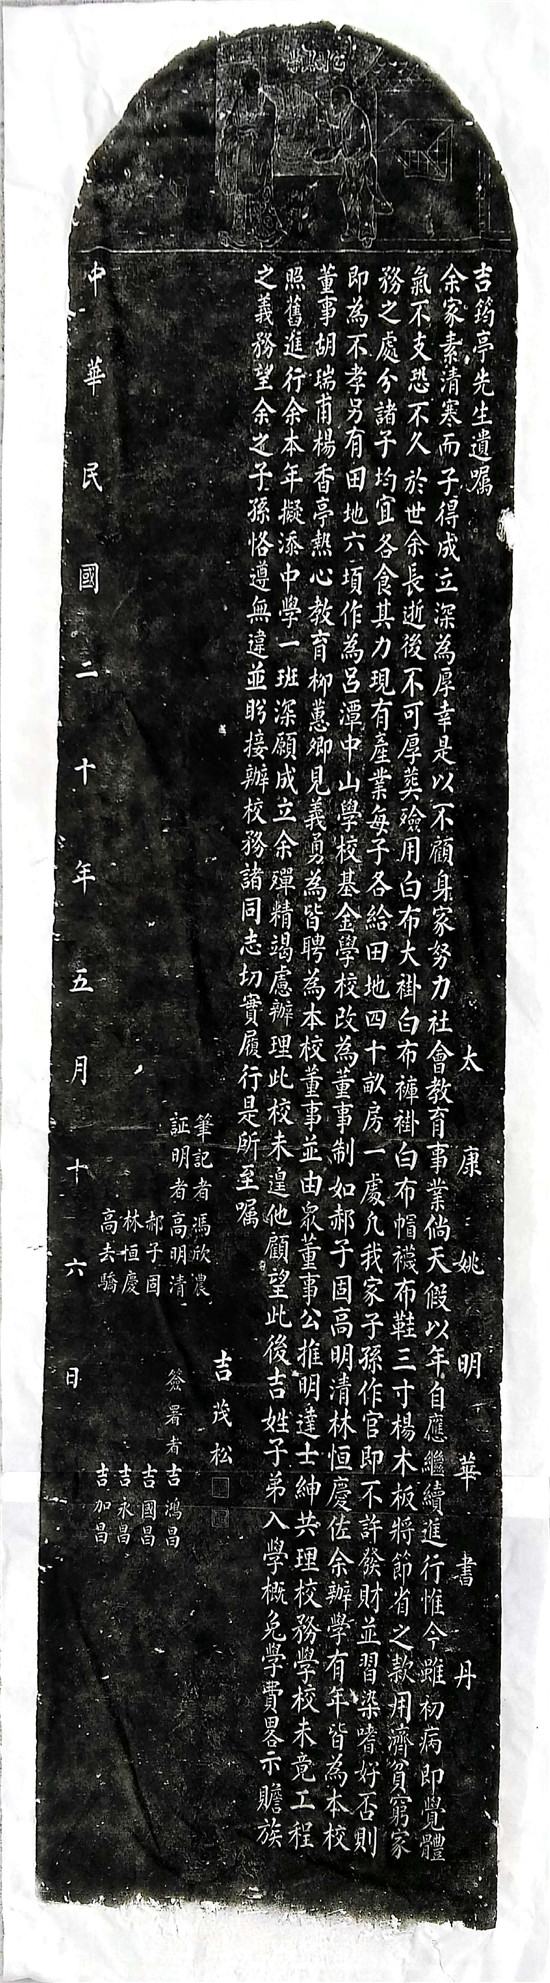 吉筠亭先生遺嘱
太康姚明華書丹
余家素清寒而子得成立深為厚幸是以不顧身家努力社會教育事業倘天假以年自應繼續進行惟今雖初病即覺體
氣不支恐不久於世余長逝後不可厚葬殮用白布大褂白布褲褂白布帽襪布鞋三寸楊木板將節省之款用濟貧窮家
務之處分諸子均宜各食其力現有產業每子各給田地四十畝房一處凡我家子孫作官即不許發財並習染嗜好否則
即為不孝另有田地六項作為呂潭中山學校基金學校改為董事制如郝子固高明清林恒慶佐余辦學有年皆為本校
董事胡瑞甫楊香亭熱心教育柳蕙卿見義勇為皆聘為本校董事並由眾董事公推明達士紳共理校務學校未竟工程
照舊進行余本年擬添中學一班深願成立余殫精竭慮辦理此校未遑他顧望此後吉姓子弟入學概免學費畧示贍族
之義務望余之子孫恪遵無違並盼接辦校務諸同志切實履行是所至嘱
吉茂松
筆記者 馮欣濃
証明者 高明清
郝子固
林恒慶
高去驕
簽署者 吉鴻昌
吉國昌
吉永昌
吉加昌
中華民國二十年五月十六日